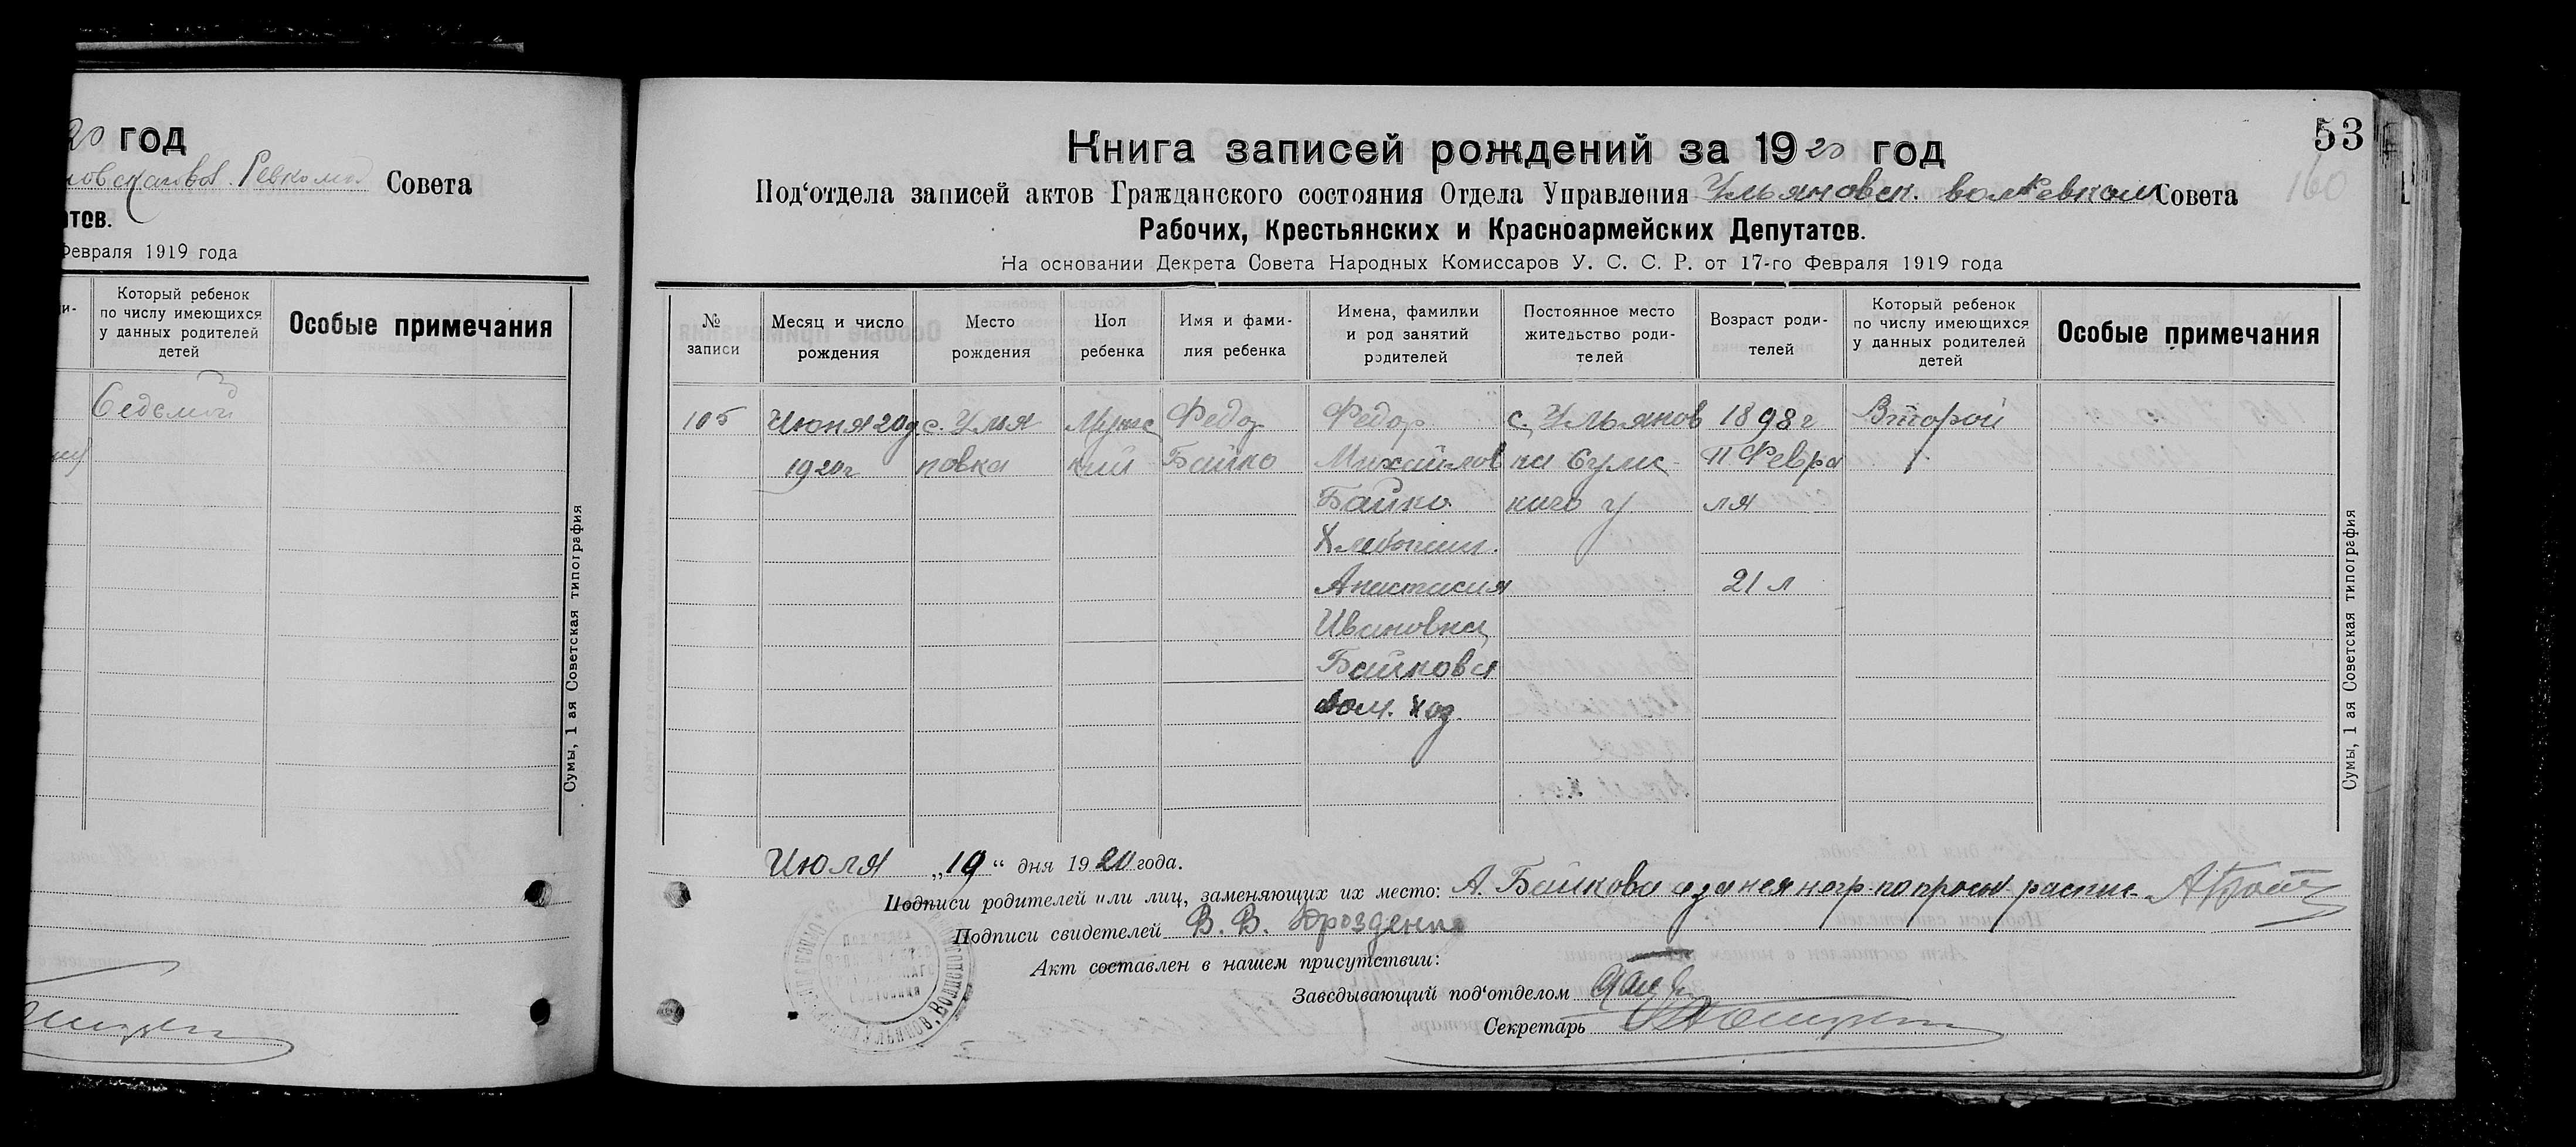 20 год
Ревком Совета
тов.
Февраля 1919 года
Который ребенок
по числу имеющихся
у данных родителей
детей
Особые примечания
Седьмой
Сумы, 1 ая Советская типография
53
160
Книга записей рождений за 1920 год
Под‘отдела записей актов Гражданского состояния Отдела Управления Ульяновск. волРевком Совета
Рабочих, Крестьянских и Красноармейских Депутатов.
На основании Декрета Совета Народных Комиссаров У. С. С. Р. от 17-го Февраля 1919 года
№
записи
Месяц и число
рождения
Место
рождения
Пол
ребенка
Имя и фами-
лия ребенка
Имена, фамилии
и род занятий
родителей
Постоянное место
жительство роди-
телей
Возраст роди-
телей
Который ребенок
по числу имеющихся
у данных родителей
детей
Особые примечания
105
20
1920 г
с. Улья
новка
Мужс
кий
Федор
Байко
Федор
Михайлов
Байко
Хлебопаш.
Анастасия
Ивановна
Байкова
дом. хоз.
с. Ульянов
ка Сумс
кого у
1898 г
11 Февра
ля
21 л
Второй
Сумы, 1 ая Советская типография
Июля „19“ дня 1920 года.
Подписи родителей или лиц, заменяющих их место: А. Байкова а за нея негр. по прозьб распис.
Подписи свидетелей В. В. Дрозденко
Акт составлен в нашем присутствии:
Заведывающий под‘отделом
Секретарь